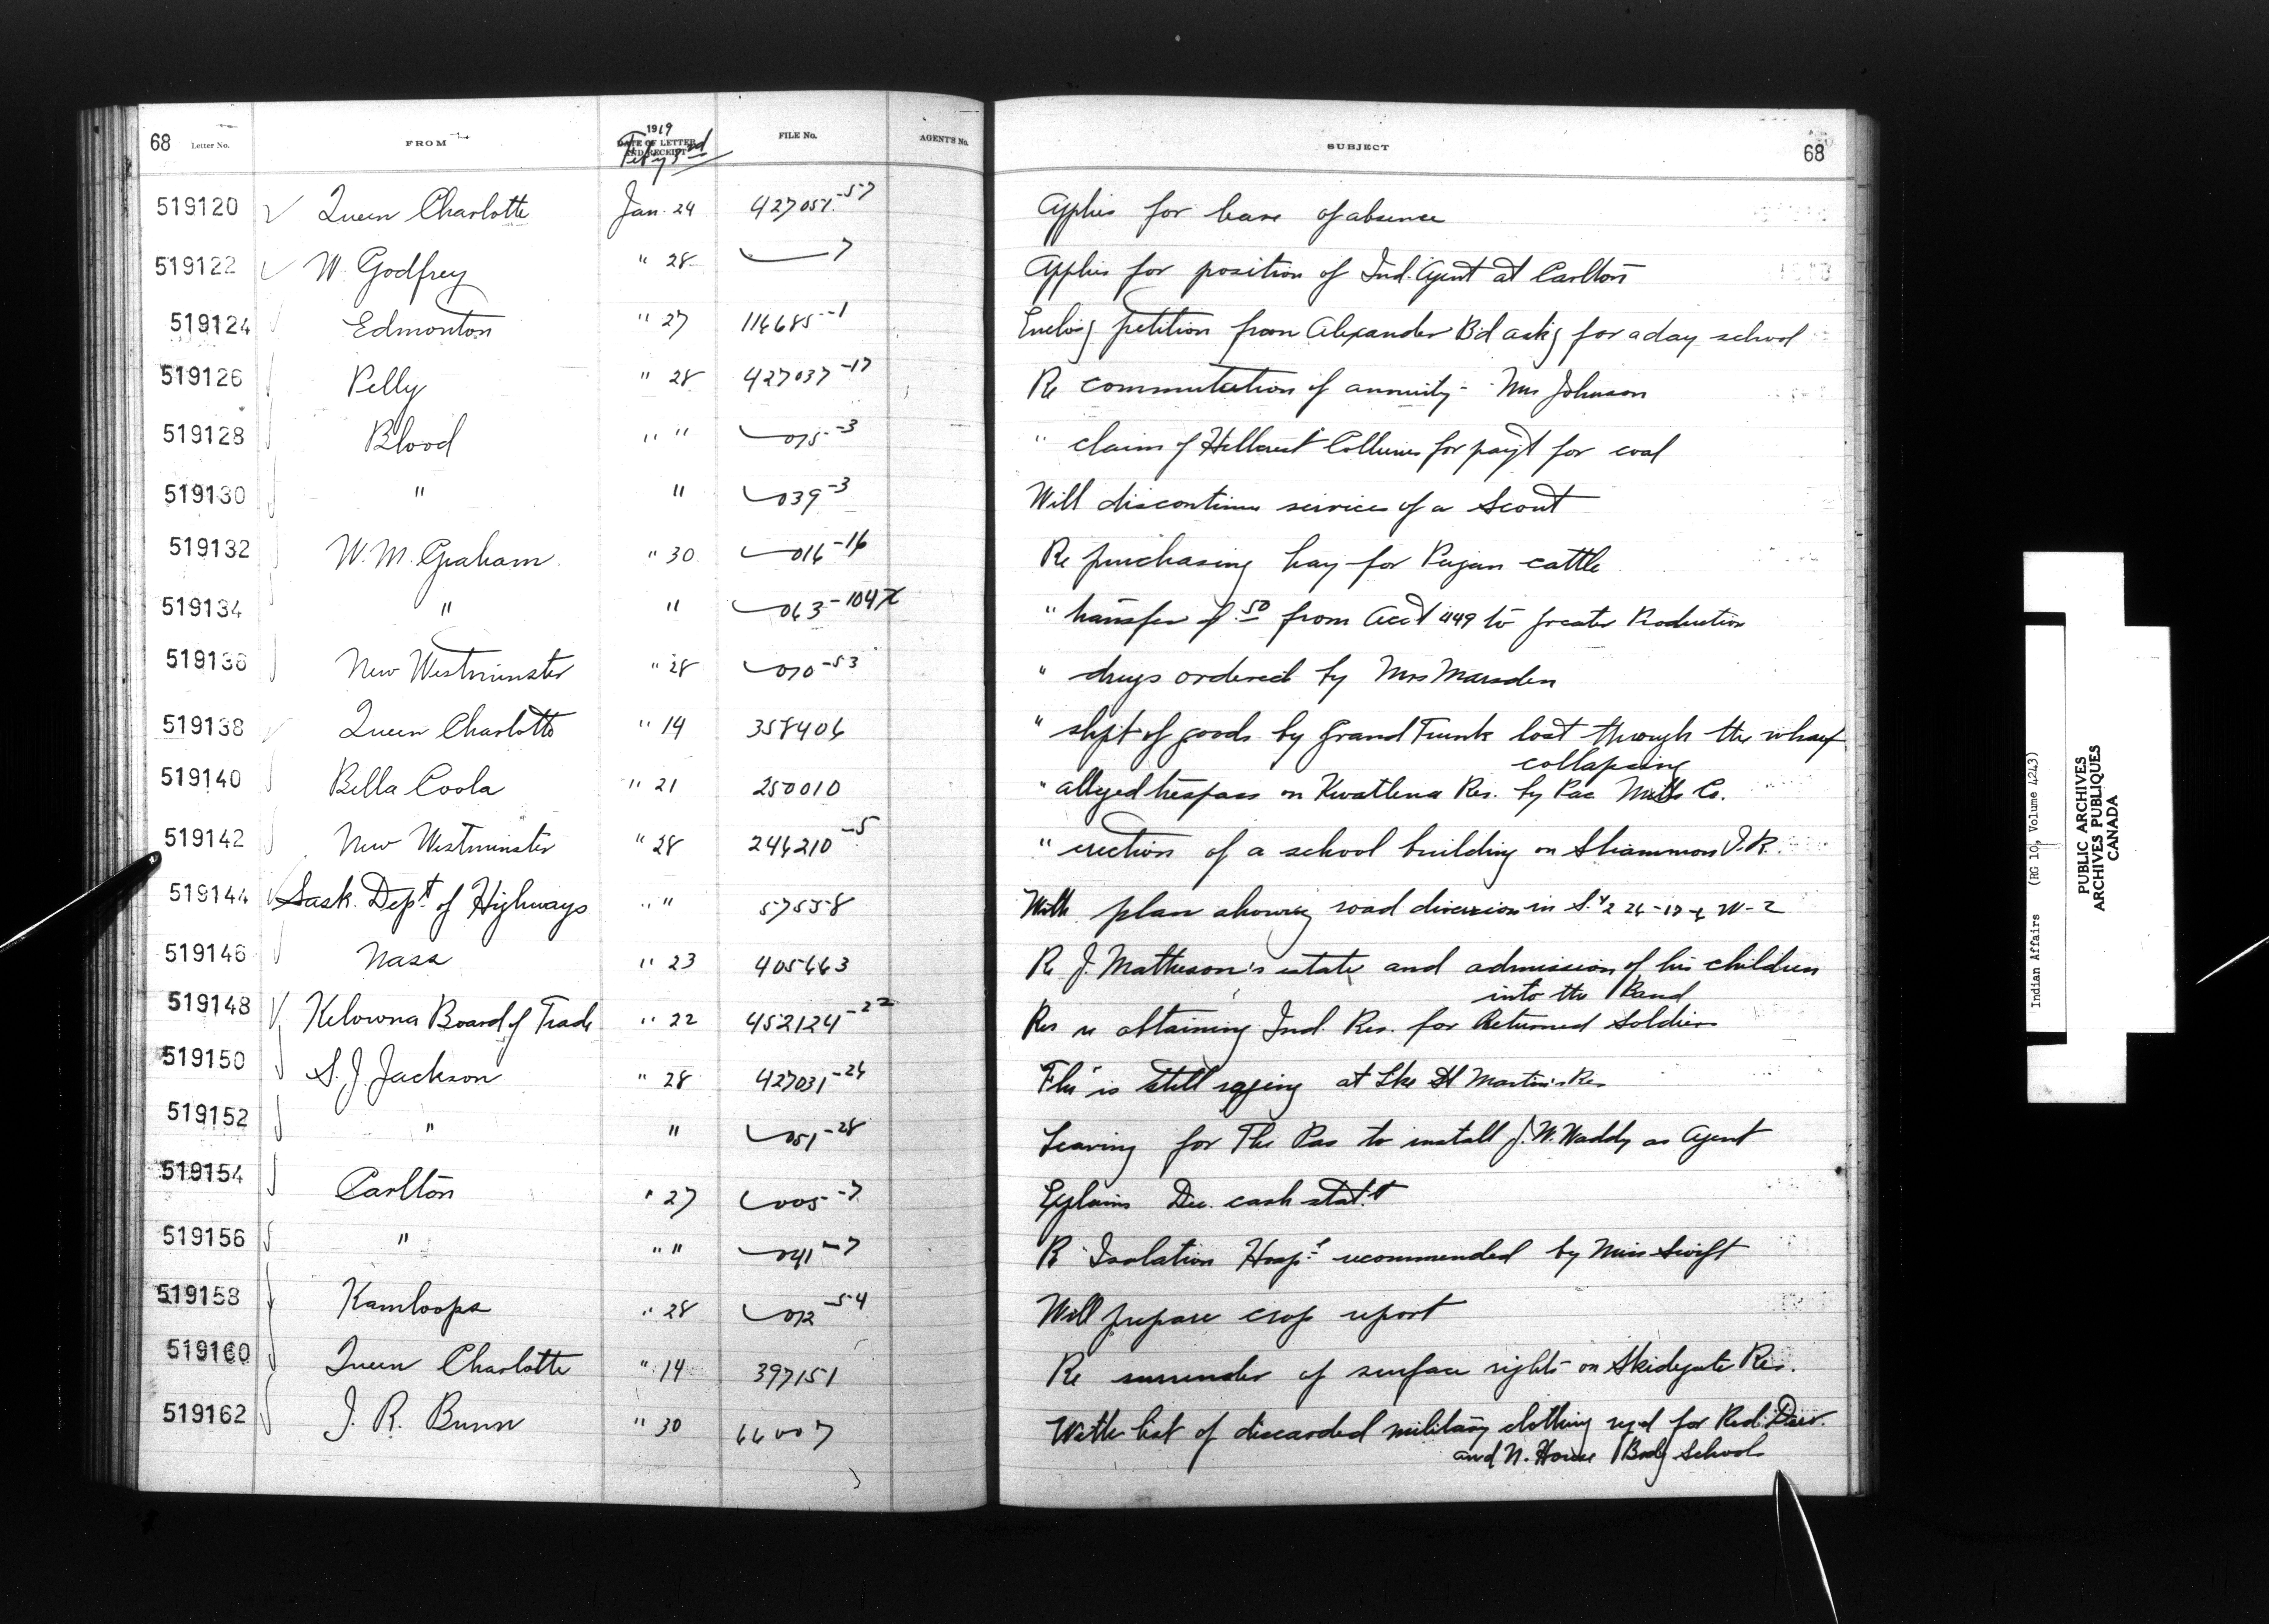 68 Letter No. FROM 1919 DATE OF LETTER AND RECEIPT Feby 3rd FILE No. AGENT'S No. SUBJECT 68
519120 Queen Charlotte Jan. 24 427051-57 Applies for leave of absence
519122 W. Godfrey " 28 7 Applies for position of Ind. Agent at Carlton
519124 Edmonton " 27 114685-1 Enclos'g petition from Alexander B'd ask'g for a day school
519126 Pelly " 28 427037-17 Re commutation of annuity - Mrs Johnson
519128 Blood " " 015-3 " claim of Hillcrest Collieries for pay't for coal
519130 " " 039-3 Will discontinue services of a Scout
519132 W. M. Graham " 30 016-16 Re purchasing hay for Piegan cattle
519134 " " 063-104X " transfer of .50 from Acct 449 to Greater Production
519136 New Westminster " 28 010-53 " drugs ordered by Mrs Marsden
519138 Queen Charlotte " 14 358406 " shpt of goods by Grand Trunk lost through the wharf
collapsing
519140 Bella Coola " 21 250010 " alleged trespass on Kwatlena Res. by Pac Mills Co.
519142 New Westminster " 28 246210-5 " erection of a school building on Sliammon I.R.
519144 Sask. Dept. of Highways " " 57558 With plan showing road diversion in S. 1/2 26-17- W-2
519146 Nass " 23 405663 Re J. Matheson's estate and admission of his children
into the Band
519148 Kelowna Board of Trade " 22 452124-22 Res re obtaining Ind. Res. for Returned Soldiers
519150 S. J. Jackson " 28 427031-26 "Flu" is still raging at Lke St Martin's Res
519152 " " 051-28 Leaving for The Pas to install J. W. Waddy as Agent
519154 Carlton " 27 005-7 Explains Dec. cash stat.t
519156 " " " 041-7 Re Isolation Hosp.l recommended by Miss Swift
519158 Kamloops " 28 012-54 Will prepare crop report
519160 Queen Charlotte " 14 397151 Re surrender of surface rights on Skidegate Res.
519162 J. R. Bunn " 30 66007 With list of discarded military clothing req'd for Red Deer
and N. House Bodg Schools
Indian Affairs (RG 10, Volume 4243)
PUBLIC ARCHIVES
ARCHIVES PUBLIQUES
CANADA